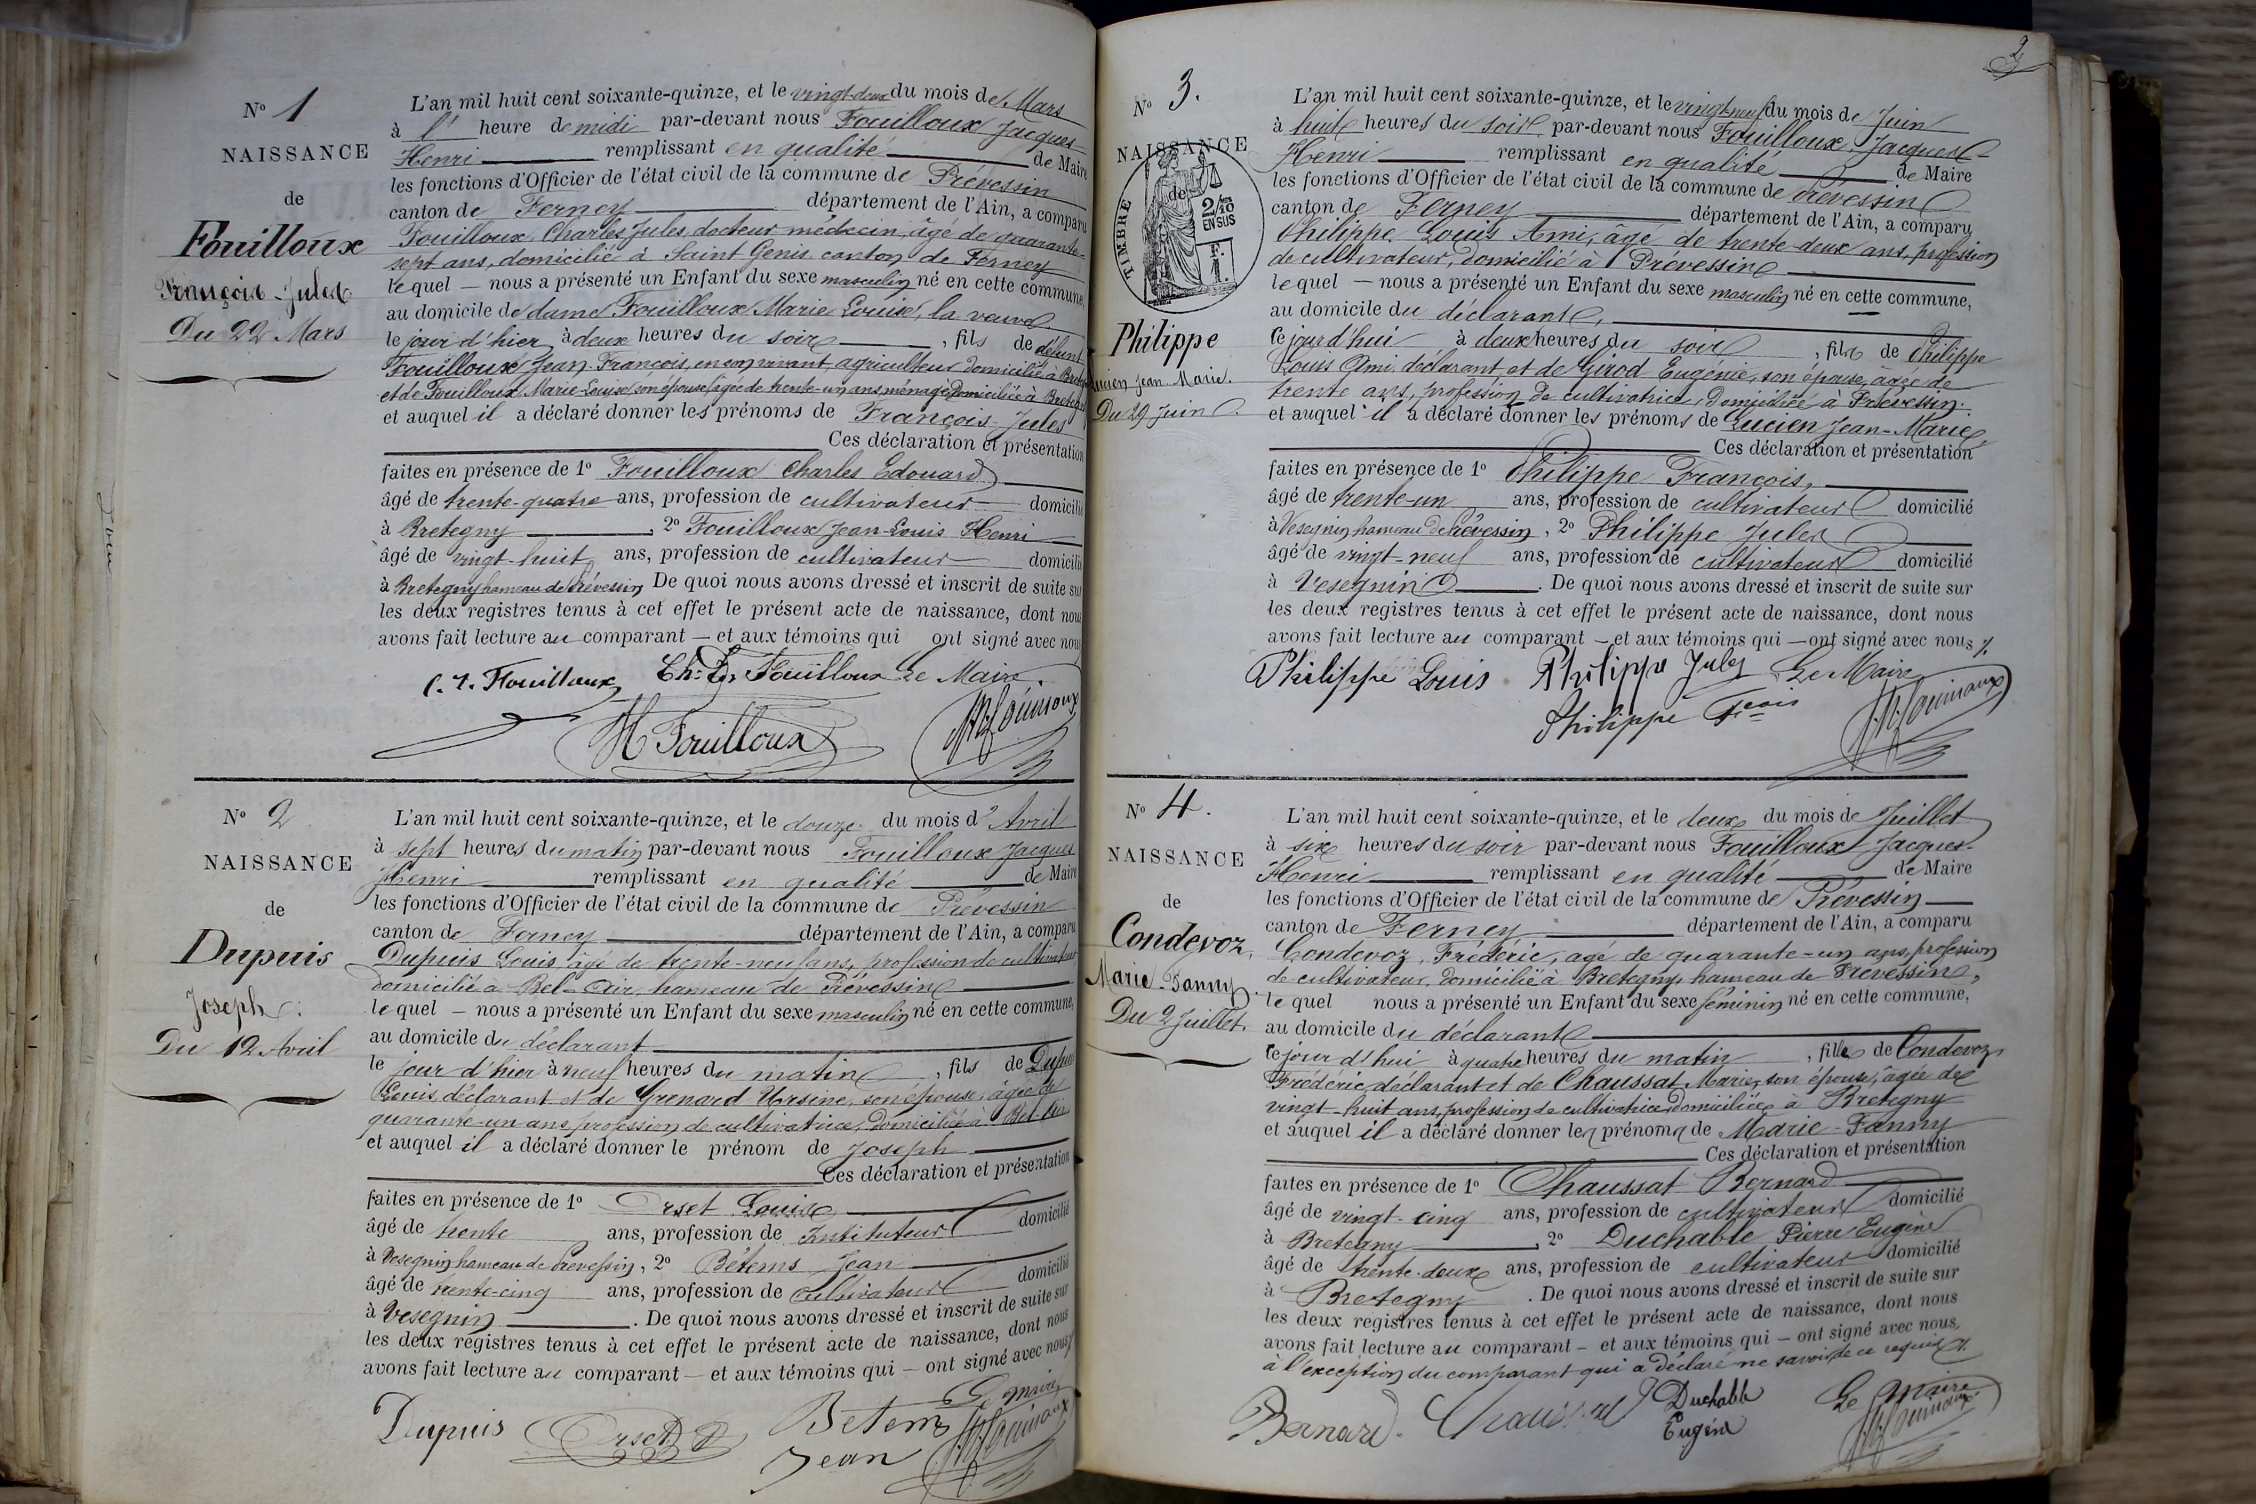 N° 1
NAISSANCE
de
Fouilloux
François-Jules
Du 22 Mars
L'an mil huit cent soixante-quinze, et le vingt-deux du mois de Mars
à l' heure de midi par-devant nous Fouilloux Jacques
Henri remplissant en qualité de Maire
les fonctions d'Officier de l'état civil de la commune de Prévessin
canton de Ferney département de l'Ain, a comparu
Fouilloux, Charles Jules, docteur médecin, âgé de quarante-
sept ans, domicilié à Saint Genis canton de Ferney
lequel — nous a présenté un Enfant du sexe masculin né en cette commune,
au domicile de dame Fouilloux Marie Louise, la veuve
le jour d'hier à deux heures du soir, fils de défunt
Fouilloux Jean François, en son vivant, agriculteur domicilié à
et de Fouilloux, Marie-Louise, son épouse, âgée de trente-un ans, ménagère, domiciliée à
et auquel il a déclaré donner les prénoms de François-Jules
Ces déclaration et présentation
faites en présence de 1° Fouilloux Charles Edouard
âgé de trente-quatre ans, profession de cultivateur domicilié
à Bretegny, 2° Fouilloux Jean-Louis Henri
âgé de vingt-huit ans, profession de cultivateur domicilié
à Bretegny hameau de Prévessin De quoi nous avons dressé et inscrit de suite sur
les deux registres tenus à cet effet le présent acte de naissance, dont nous
avons fait lecture au comparant — et aux témoins qui ont signé avec nous
C. J. Fouilloux Ch: Ed. Fouilloux Le Maire.
H Fouilloux
N° 2
NAISSANCE
de
Dupuis
Joseph.
Du 12 Avril
L'an mil huit cent soixante-quinze, et le douze du mois d'Avril
à sept heures du matin par-devant nous Fouilloux Jacques
Henri remplissant en qualité de Maire
les fonctions d'Officier de l'état civil de la commune de Prévessin
canton de Ferney département de l'Ain, a comparu
Dupuis Louis, âgé de trente-neuf ans, profession de cultivateur
domicilié à Bel-Air, hameau de Prévessin
lequel — nous a présenté un Enfant du sexe masculin né en cette commune,
au domicile du déclarant
le jour d'hier à neuf heures du matin, fils de Dupuis
Louis, déclarant et de Grenard Ursine, son épouse, âgée de
quarante-un ans, profession de cultivatrice, domiciliée à Bel-Air
et auquel il a déclaré donner le prénom de Joseph
Ces déclaration et présentation
faites en présence de 1° Orset Louis
âgé de trente ans, profession de Instituteur domicilié
à Vesegnin hameau de Prévessin, 2° Bétems Jean
âgé de trente-cinq ans, profession de cultivateur domicilié
à Vesegnin. De quoi nous avons dressé et inscrit de suite sur
les deux registres tenus à cet effet le présent acte de naissance, dont nous
avons fait lecture au comparant — et aux témoins qui — ont signé avec nous
Le Maire
Dupuis Orset Betems
Jean
2
N° 3.
NAISSANCE
de
TIMBRE
2/10
EN SUS
F.
1.
Philippe
Lucien Jean-Marie.
Du 29 Juin
L'an mil huit cent soixante-quinze, et le vingt-neuf du mois de Juin
à huit heures du soir par-devant nous Fouilloux, Jacques
Henri remplissant en qualité de Maire
les fonctions d'Officier de l'état civil de la commune de Prévessin
canton de Ferney département de l'Ain, a comparu
Philippe Louis Ami, âgé de trente-deux ans, profession
de cultivateur, domicilié à Prévessin
lequel — nous a présenté un Enfant du sexe masculin né en cette commune,
au domicile du déclarant,
ce jourd'hui à deux heures du soir, fils de Philippe
Louis Ami, déclarant, et de Girod Eugénie, son épouse, âgée de
trente ans, profession de cultivatrice, domiciliée à Prévessin.
et auquel il a déclaré donner les prénoms de Lucien Jean-Marie,
Ces déclaration et présentation
faites en présence de 1° Philippe François,
âgé de trente-un ans, profession de cultivateur domicilié
à Vesegnin hameau de Prévessin, 2° Philippe Jules
âgé de vingt-neuf ans, profession de cultivateur domicilié
à Vesegnin. De quoi nous avons dressé et inscrit de suite sur
les deux registres tenus à cet effet le présent acte de naissance, dont nous
avons fait lecture au comparant — et aux témoins qui — ont signé avec nous
Philippe Louis Philippe Jules Le Maire
Philippe Fcois
N° 4.
NAISSANCE
de
Condevoz,
Marie-Fanny.
Du 2 Juillet.
L'an mil huit cent soixante-quinze, et le deux du mois de Juillet
à six heures du soir par-devant nous Fouilloux Jacques
Henri remplissant en qualité de Maire
les fonctions d'Officier de l'état civil de la commune de Prévessin
canton de Ferney département de l'Ain, a comparu
Condevoz, Frédéric, âgé de quarante-un ans, profession
de cultivateur, domicilié à Bretegny, hameau de Prévessin,
lequel nous a présenté un Enfant du sexe féminin né en cette commune,
au domicile du déclarant
ce jourd'hui à quatre heures du matin, fille de Condevoz
Frédéric, déclarant et de Chaussat Marie, son épouse, âgée de
vingt-huit ans, profession de cultivatrice, domiciliée à Bretigny
et auquel il a déclaré donner les prénoms de Marie-Fanny
Ces déclaration et présentation
faites en présence de 1° Chaussat Bernard
âgé de vingt-cinq ans, profession de cultivateur domicilié
à Bretegny, 2° Duchable Pierre Eugène
âgé de trente-deux ans, profession de cultivateur domicilié
à Bretegny. De quoi nous avons dressé et inscrit de suite sur
les deux registres tenus à cet effet le présent acte de naissance, dont nous
avons fait lecture au comparant — et aux témoins qui — ont signé avec nous,
à l'exception du comparant qui a déclaré ne savoir, de ce requis
Bernard. Chaussat Duchable Le Maire
Eugène